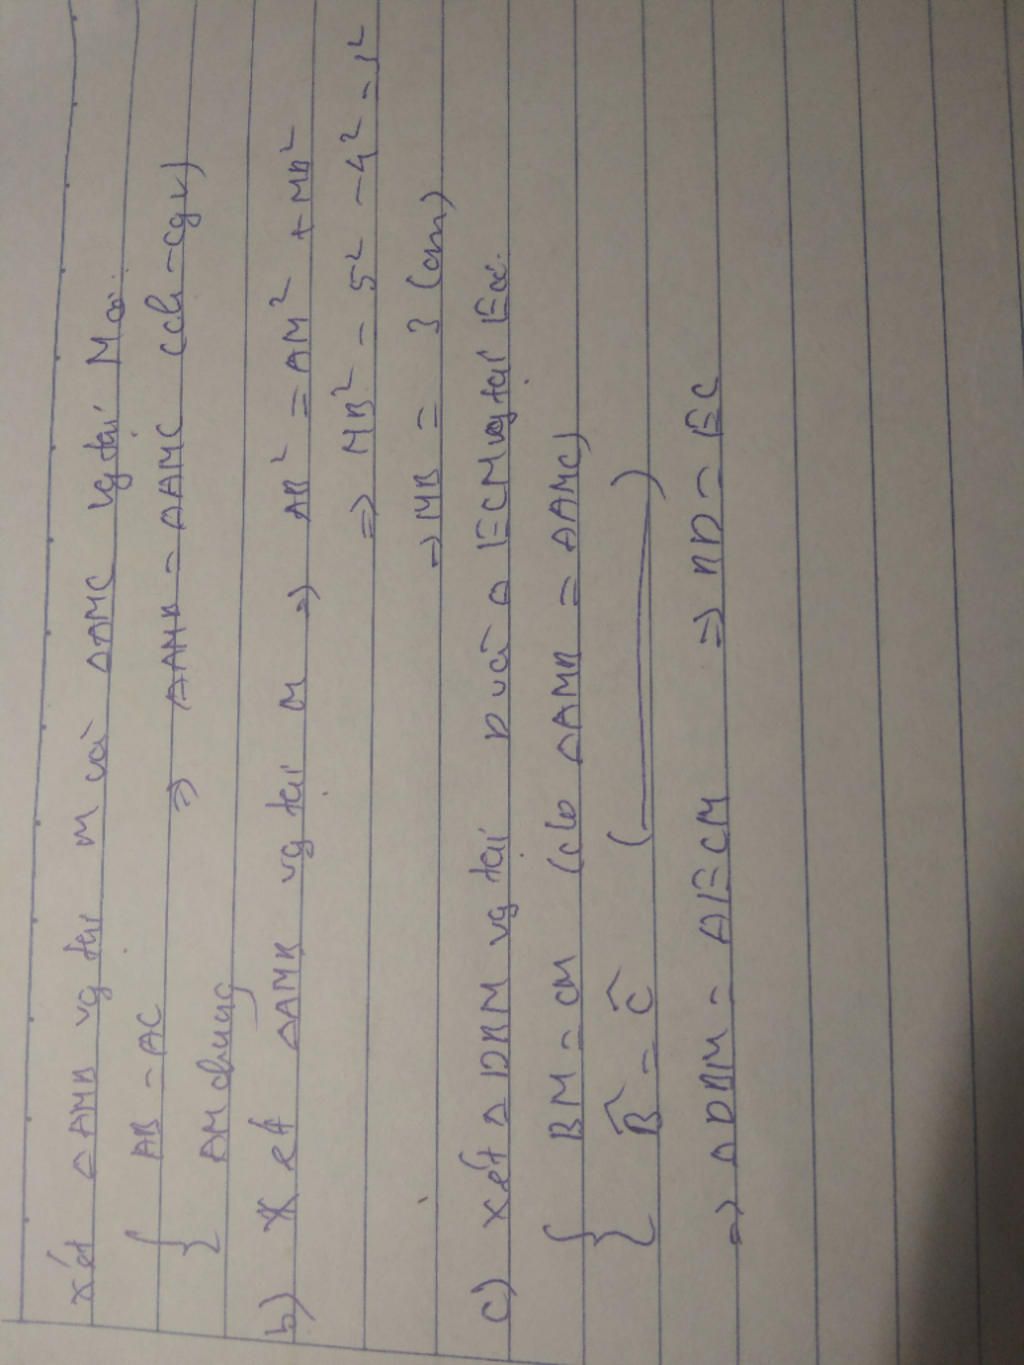 Xét △AMB vg tại M và △AMC vg tại M có:
{ AB = AC
AM chung ⇒ △AMB = △AMC (ch-cgv)
b) Xét △AMB vg tại M ⇒ AB² = AM² + MB²
⇒ MB² = 5² - 4² =
⇒ MB = 3 (cm)
c) Xét △DBM vg tại D và △ECM vg tại E có:
{ BM = CM (do △AMB = △AMC)
B̂ = Ĉ ( ——— )
⇒ △DBM = △ECM ⇒ BD = EC